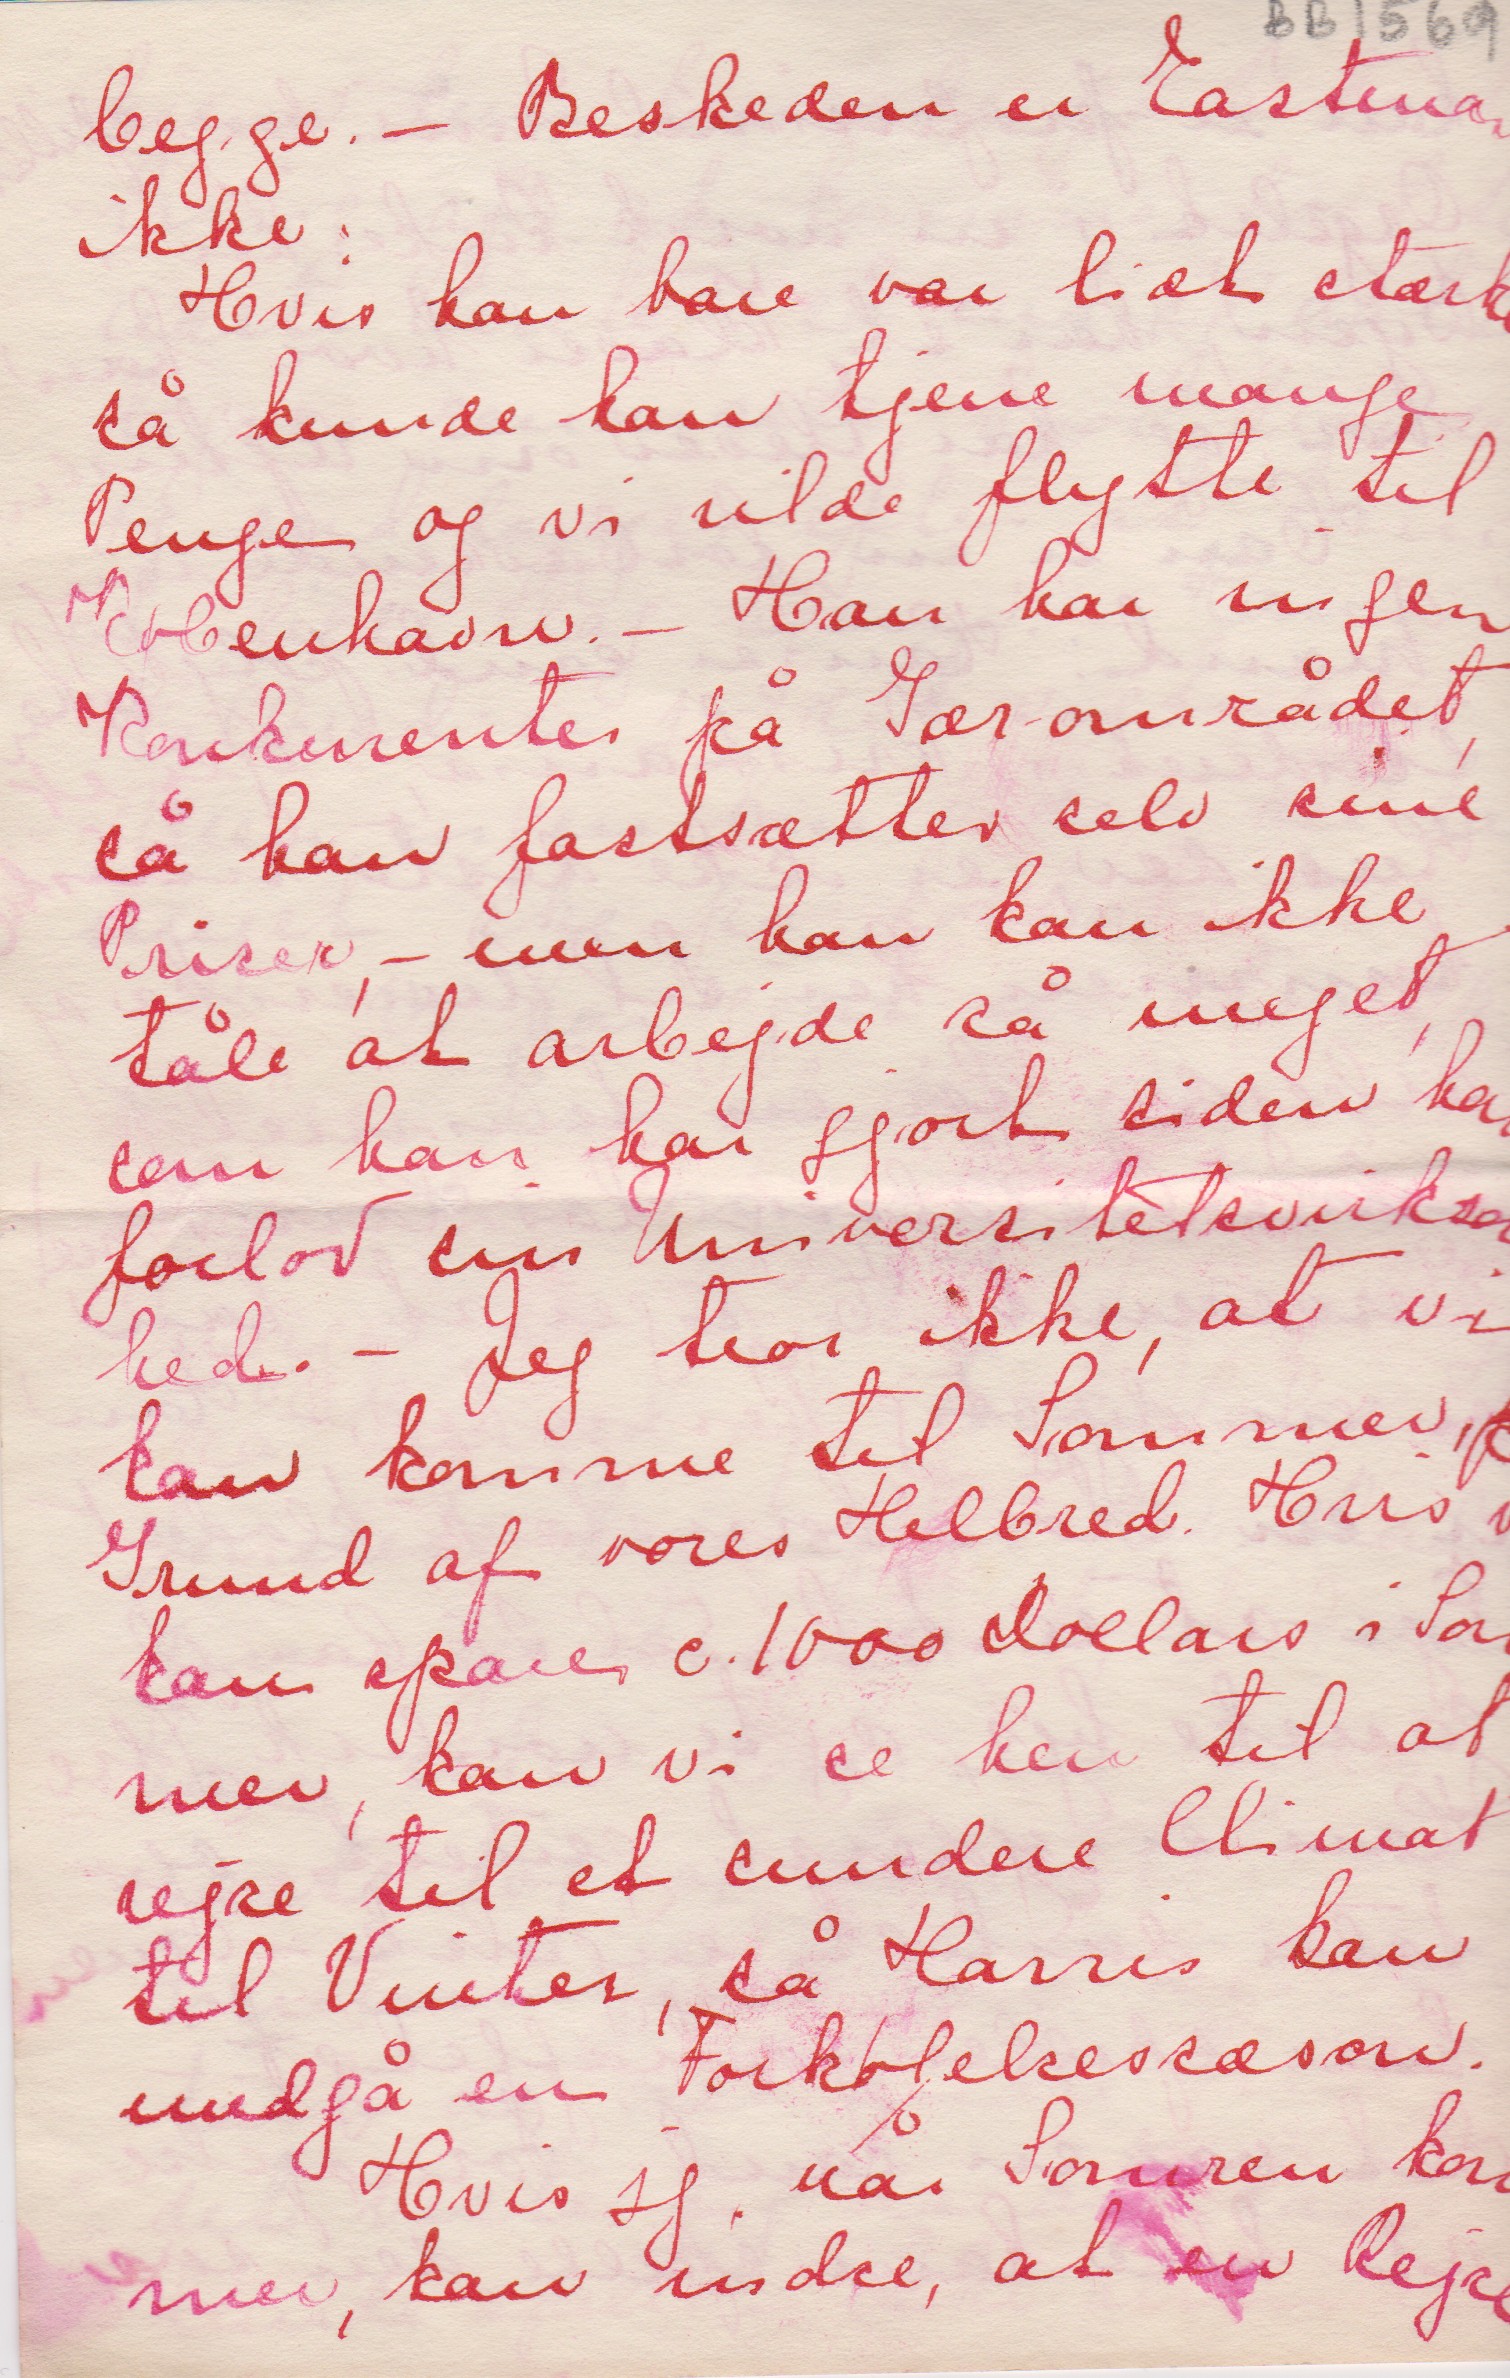 BB1569
begge. — Beskeden er Eastman
ikke.
Hvis han bare var lidt stærk
så kunde han tjene mange
Penge og vi vilde flytte til
København. — Han har ingen
Konkurrenter på Gær-området,
så han fastsætter selv sine
Priser, — men han kan ikke
tåle at arbejde så meget,
som han har gjort siden han
forlod sin Universitetsvirksom
hed. — Jeg tror ikke, at vi
kan komme til Sommer, på
Grund af vores Helbred. Hvis v
kan spare c. 1000 Dollars i Som
mer, kan vi se hen til at
rejse til et sundere Climat
til Vinter, så Harris kan
undgå en Forkølelsessæson.
Hvis jeg, når Somren kom
mer, kan indse, at en Rejse